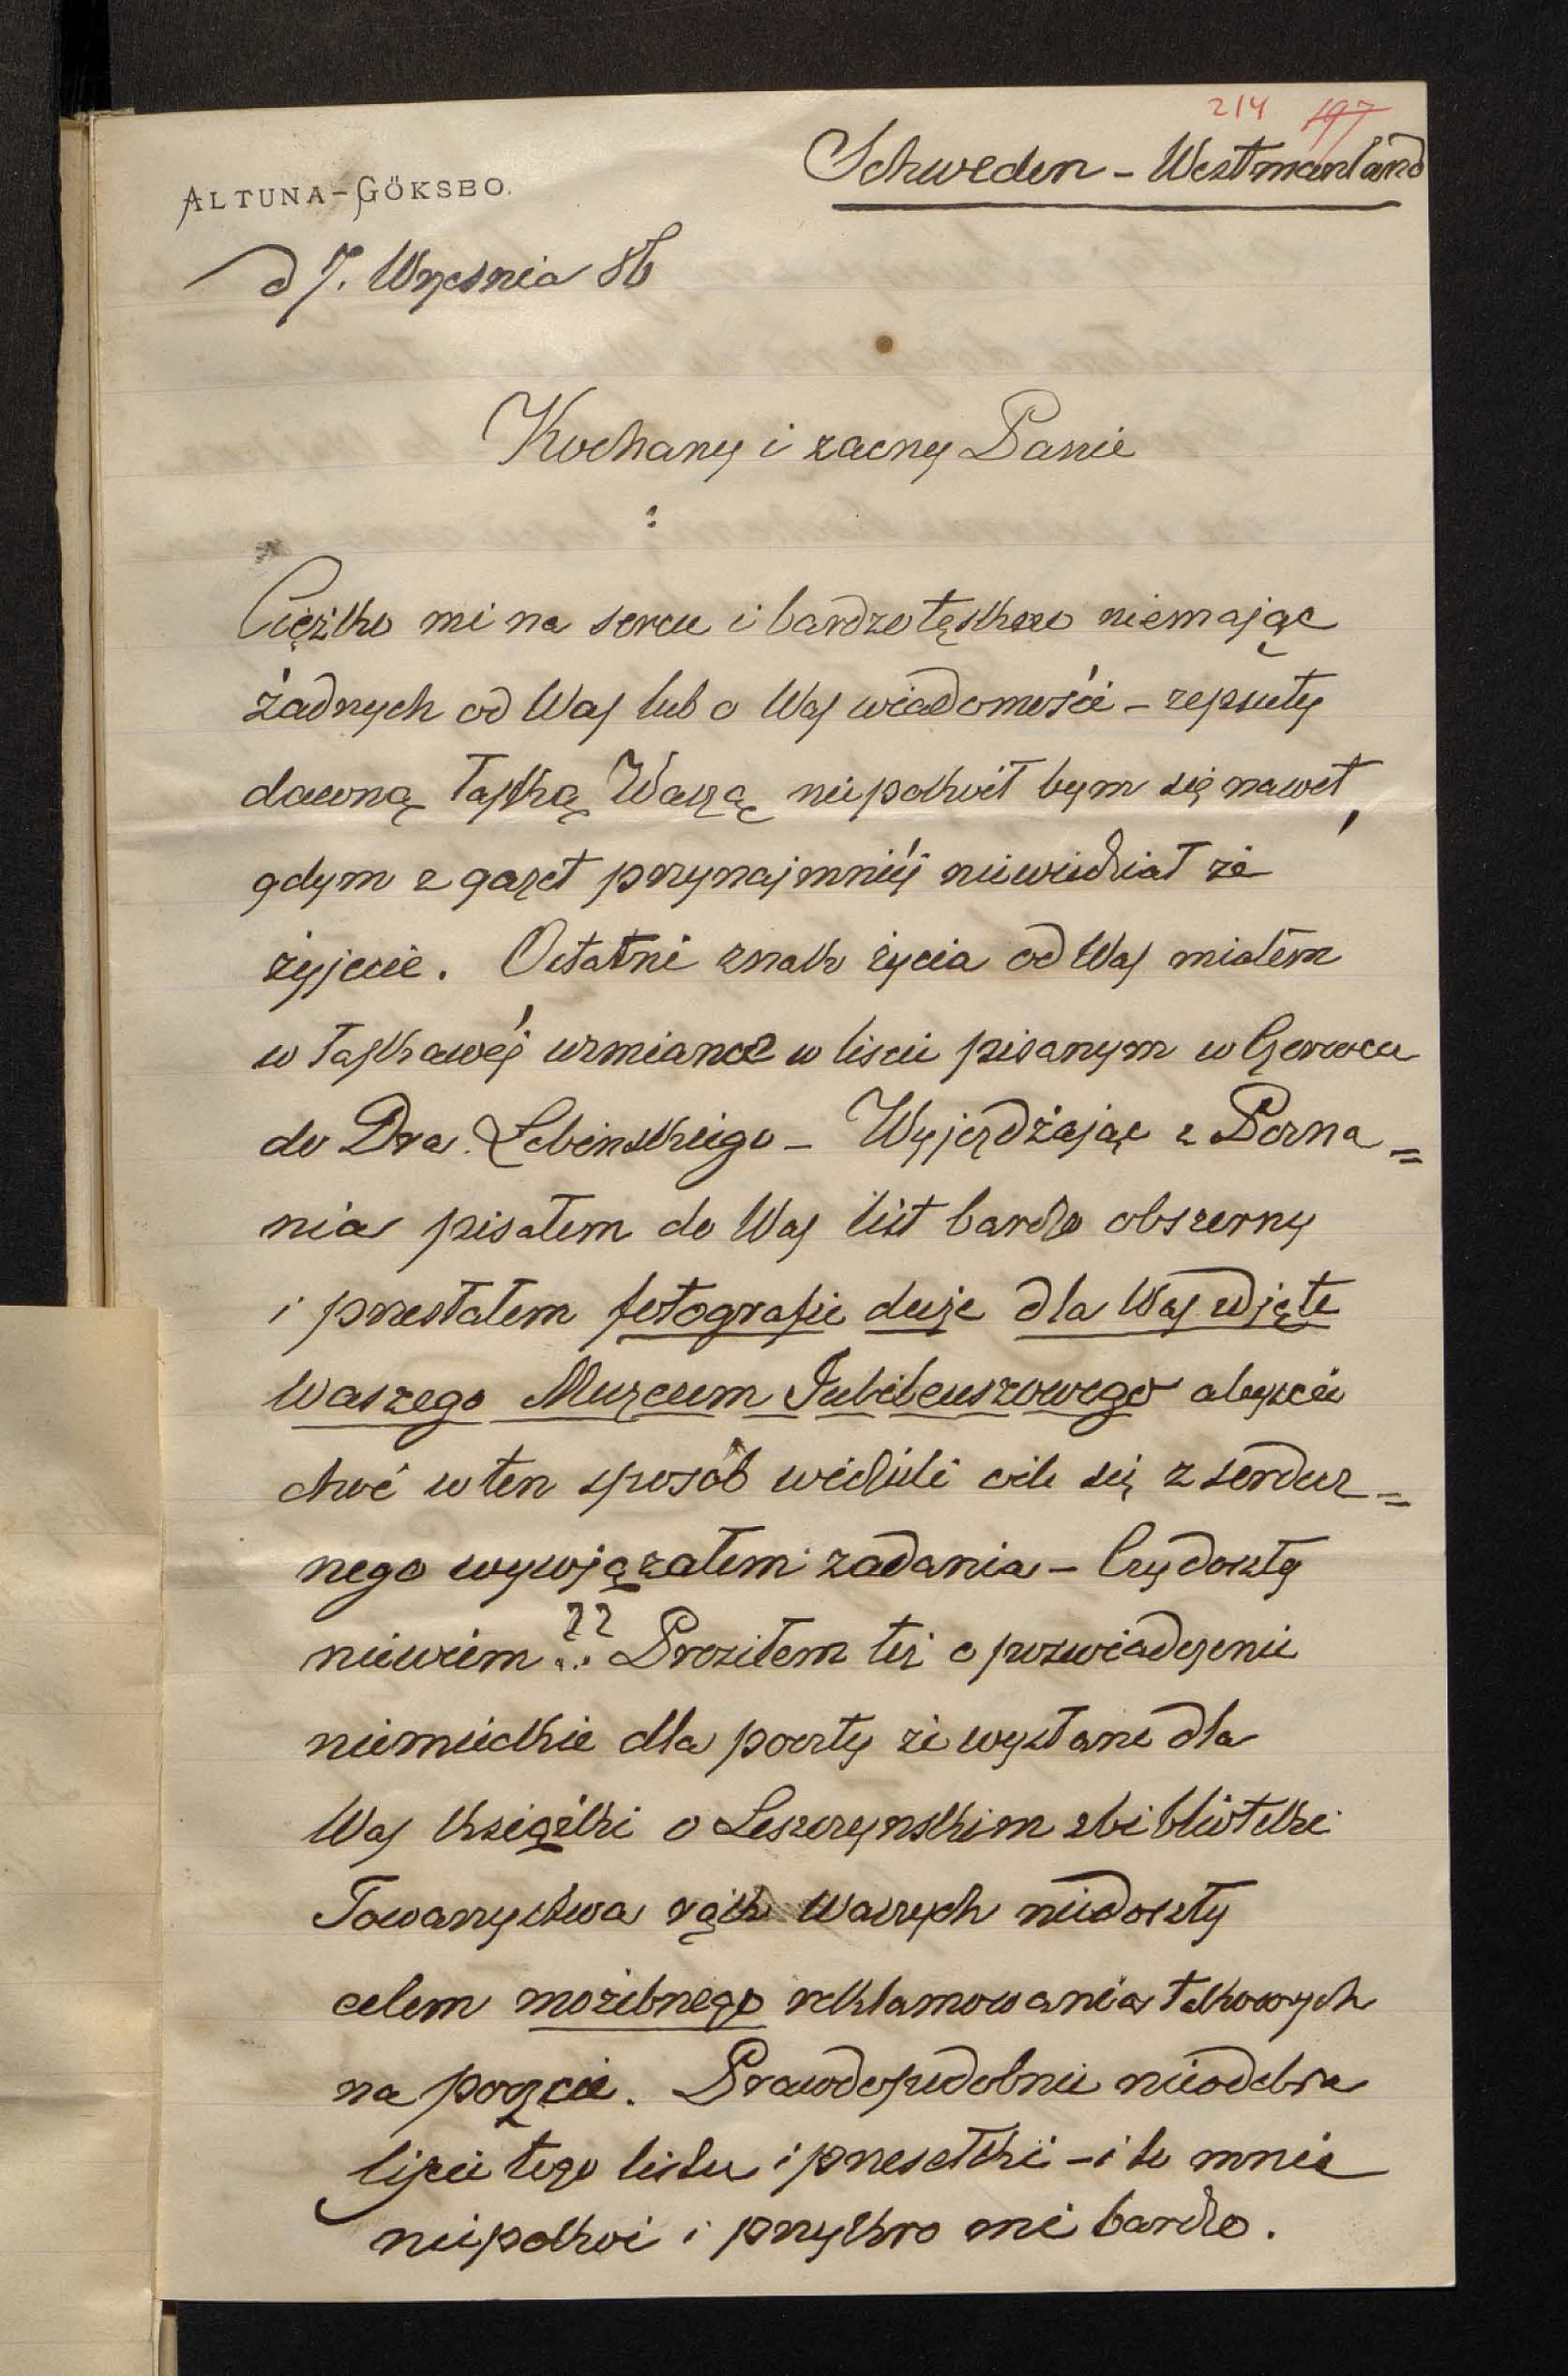 214 197
Schweden - Westmanland
ALTUNA-GÖKSBO.
d 7. Września 86
Kochany i zacny Panie
:
Ciężko mi na sercu i bardzo tęskno niemając
żadnych od Was lub o Was wiadomości – zepsuty
dawną łaską Waszą niepokoił bym się nawet,
gdym z gazet przynajmniéj niewiedział że
żyjecie. Ostatni znak życia od Was miałem
w łaskawéj wzmiance w liście pisanym w Czerwcu
do Dra. Łebinskiego – Wyjeżdżając z Pozna=
nia pisałem do Was list bardzo obszerny
i przesłałem fotografie duże dla Was zdjęte
Waszego Muzeum Jubileuszowego abyście
choć w ten sposób widzieli o ile się z serdecz=
nego wywiązałem zadania – Czy doszły
niewiem ?? .. Prosiłem też o poświadczenie
niemieckie dla poczty że wysłane dla
Was książki o Leszczynskim z biblioteki
Towarzystwa rąk Waszych niedoszły
celem możebnego reklamowania takowych
na poczcie. Prawdopodobnie nieodebra
liście tego listu i przesełki – i to mnie
niepokoi i przykro mi bardzo.